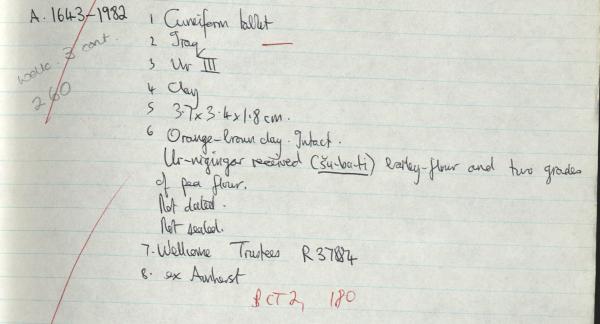 A. 1643-1982
1 Cuneiform tablet
2 Iraq
3 Ur III
4 Clay
5 3.7 x 3.4 x 1.8 cm.
6 Orange-brown clay. Intact.
Ur-nigingar received (šu-ba-ti) barley-flour and two grades
of pea flour.
Not dated.
Not sealed.
7. Wellcome Trustees R 37884
8. ex Amherst
BCT 2, 180
Wellc. 3 cont.
260